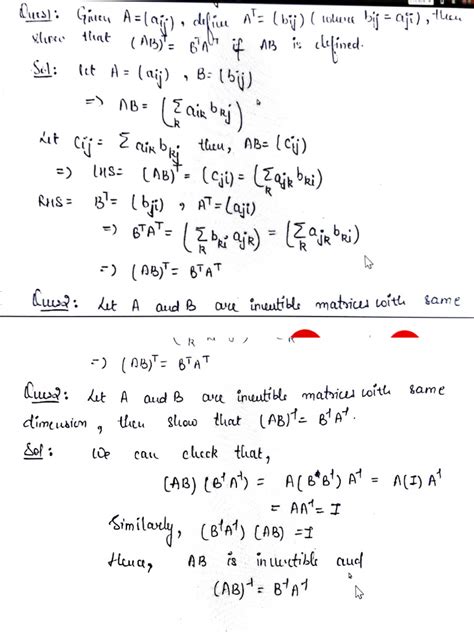 Ques1: Given A = (aij), define Aᵀ = (bij) (where bij = aji), then
show that (AB)ᵀ = BᵀAᵀ if AB is defined.
Sol: let A = (aij), B = (bij)
=> AB = (Σ_k aik bkj)
Let Cij = Σ aik bkj then, AB = (Cij)
=> LHS = (AB)ᵀ = (Cji) = (Σ_k ajk bki)
RHS = Bᵀ = (bji), Aᵀ = (aji)
=> BᵀAᵀ = (Σ_k bki ajk) = (Σ_k ajk bki)
=> (AB)ᵀ = BᵀAᵀ
Ques2: Let A and B are invertible matrices with same
=> (AB)ᵀ = BᵀAᵀ
Ques2: Let A and B are invertible matrices with same
dimension, then show that (AB)⁻¹ = B⁻¹A⁻¹.
Sol: We can check that,
(AB)(B⁻¹A⁻¹) = A(BB⁻¹)A⁻¹ = A(I)A⁻¹
= AA⁻¹ = I
Similarly, (B⁻¹A⁻¹)(AB) = I
Hence, AB is invertible and
(AB)⁻¹ = B⁻¹A⁻¹